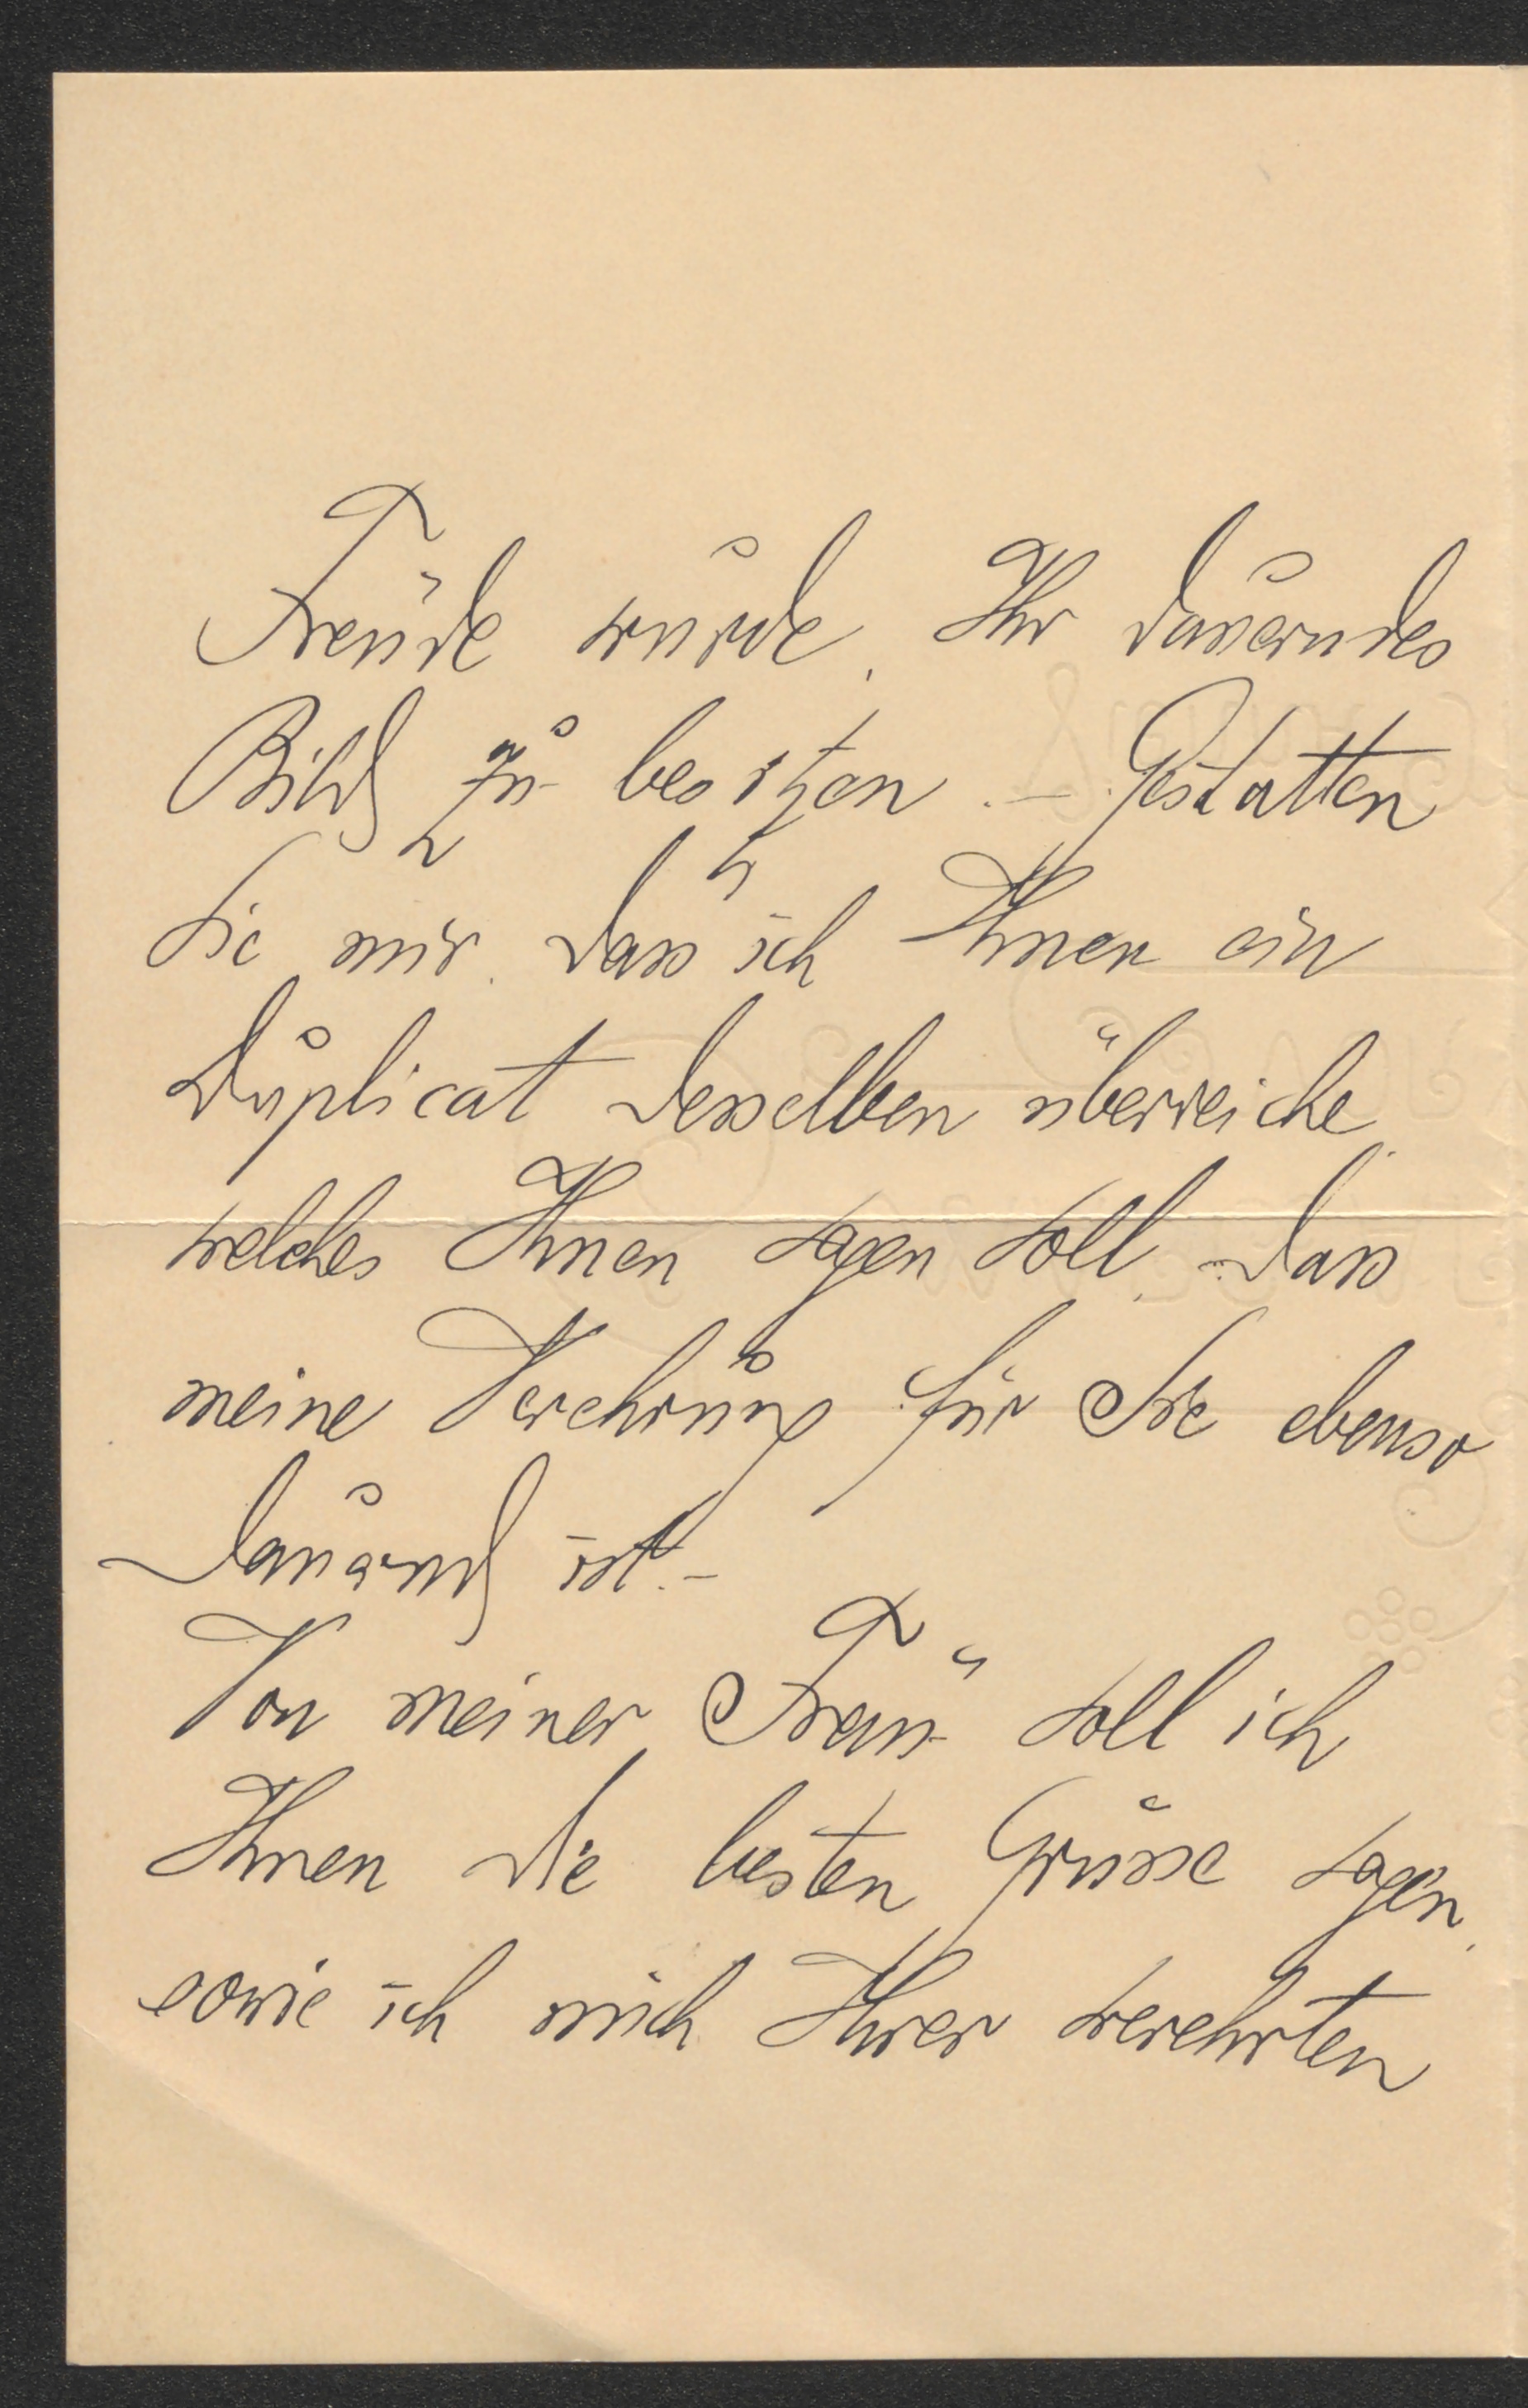 Freude wurde, Ihr dauerndes
Bild zu besitzen. – Gestatten
Sie mir, dass ich Ihnen ein
Duplicat desselben überreiche,
welches Ihnen sagen soll, dass
meine Verehrung für Sie ebenso
dauernd ist. –
Von meiner Frau soll ich
Ihnen die besten Grüsse sagen,
sowie ich mich Ihrer verehrten